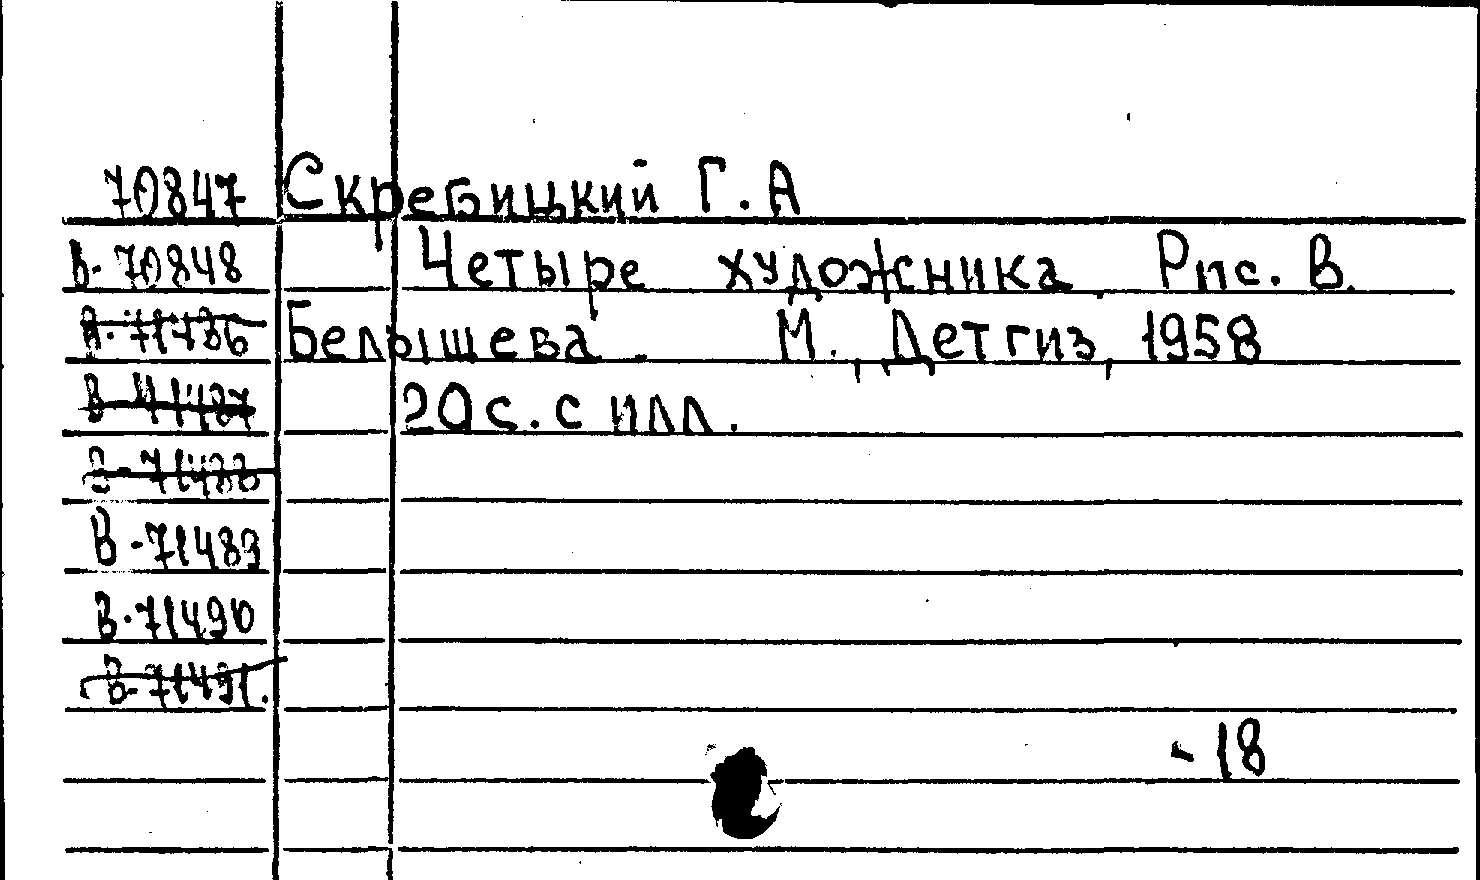 70847 Скребицкий Г. А
В-70848 Четыре художника. Рис. В.
В-71486 Белышева. М., Детгиз, 1958
В-71487 20 с. с илл.
В-71488
В-71489
В-71490
В-71491.
- 18